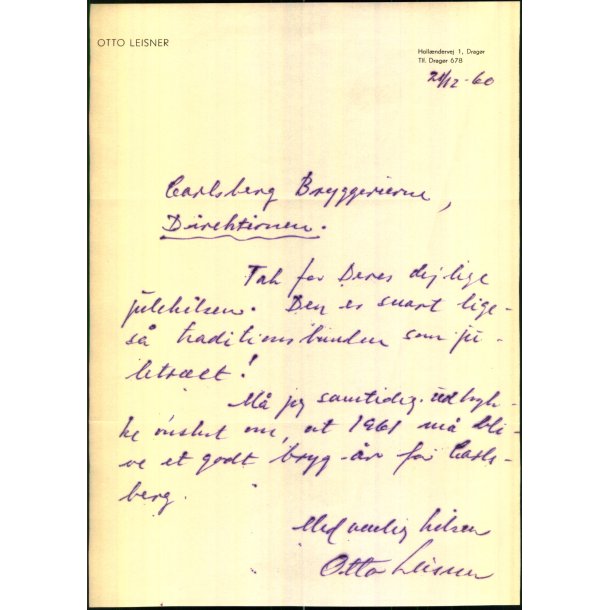 OTTO LEISNER
Hollændervej 1, Dragør
Tlf. Dragør 678
21/12-60
Carlsberg Bryggerierne,
Direktionen.
Tak for Deres dejlige
julehilsen. Den er snart lige-
så traditionsbunden som ju-
letræet!
Må jeg samtidig udtryk-
ke ønsket om, at 1961 må bli-
ve et godt bryg-år for Carls-
berg.
Med venlig hilsen
Otto Leisner